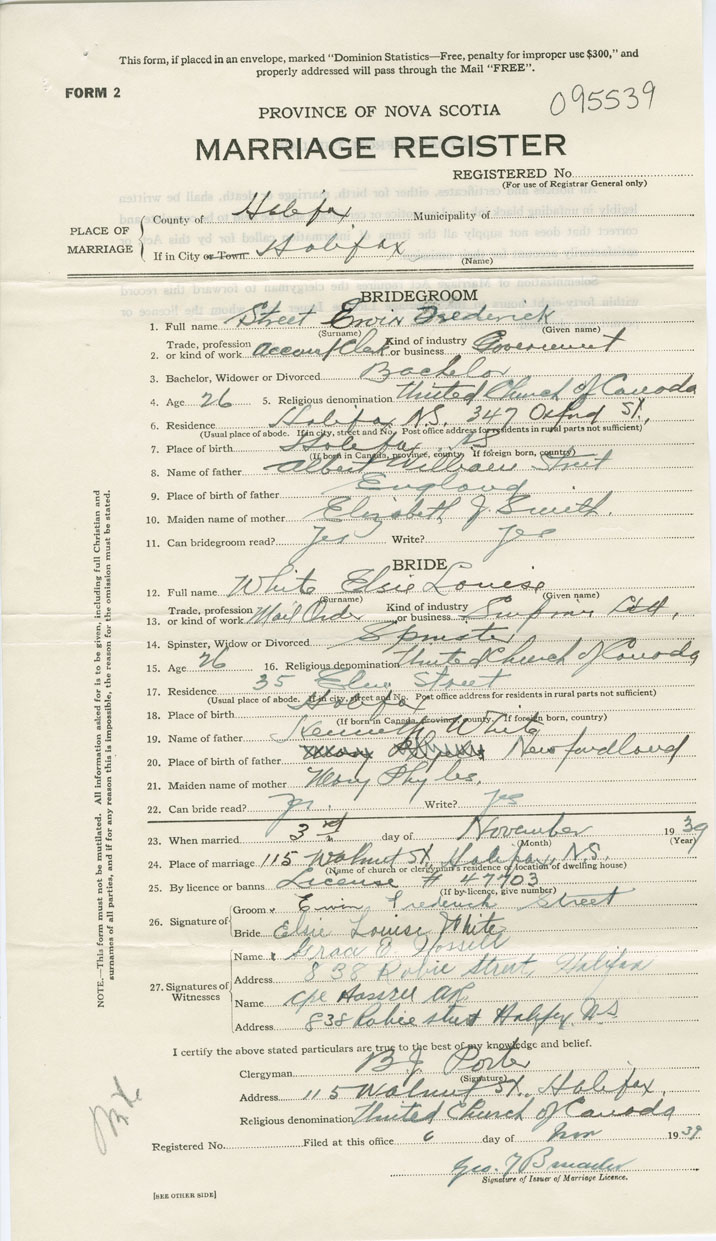 This form, if placed in an envelope, marked "Dominion Statistics—Free, penalty for improper use $300," and
properly addressed will pass through the Mail "FREE".
FORM 2
095539
PROVINCE OF NOVA SCOTIA
MARRIAGE REGISTER
REGISTERED No.
(For use of Registrar General only)
PLACE OF MARRIAGE
County of Halifax Municipality of
If in City or Town Halifax
(Name)
BRIDEGROOM
1. Full name Street Erwin Frederick
(Surname) (Given name)
2. Trade, profession or kind of work Account Clerk Kind of industry or business Government
3. Bachelor, Widower or Divorced Bachelor
4. Age 26 5. Religious denomination United Church of Canada
6. Residence Halifax N.S. 347 Oxford St.
(Usual place of abode. If in city, street and No. Post office address for residents in rural parts not sufficient)
7. Place of birth Halifax NS
(If born in Canada, province, county. If foreign born, country)
8. Name of father Albert William Street
9. Place of birth of father England
10. Maiden name of mother Elizabeth J. Smith.
11. Can bridegroom read? Yes Write? Yes
BRIDE
12. Full name White Elsie Louise
(Surname) (Given name)
13. Trade, profession or kind of work Mail Order Kind of industry or business Simpsons Ltd.
14. Spinster, Widow or Divorced Spinster
15. Age 26 16. Religious denomination United Church of Canada
17. Residence 35 Elm Street
(Usual place of abode. If in city, street and No. Post office address for residents in rural parts not sufficient)
18. Place of birth Halifax
(If born in Canada, province, county. If foreign born, country)
19. Name of father Kenneth White
20. Place of birth of father Newfoundland
21. Maiden name of mother Mary Phyles.
22. Can bride read? yes. Write? yes
23. When married 3rd day of November 1939
(Month) (Year)
24. Place of marriage 115 Walnut St., Halifax, N.S.
(Name of church or clergyman's residence or location of dwelling house)
25. By licence or banns License # 47703
(If by licence, give number)
26. Signature of
Groom Erwin Frederick Street
Bride Elsie Louise White
27. Signatures of Witnesses
Name Grace
Address 838 Robie Street, Halifax
Name
Address 838 Robie street Halifax N.S
I certify the above stated particulars are true to the best of my knowledge and belief.
Clergyman B J Porter
(Signature)
Address 115 Walnut St., Halifax.
Religious denomination United Church of Canada
Registered No. Filed at this office 6 day of Nov 1939
Geo.
Signature of Issuer of Marriage Licence.
[SEE OTHER SIDE]
NOTE.—This form must not be mutilated. All information asked for is to be given, including full Christian and
surnames of all parties, and if for any reason this is impossible, the reason for the omission must be stated.